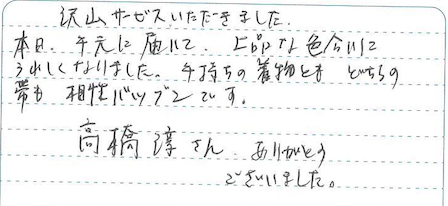 沢山サービスいただきました。
本日、手元に届いて、上品な色合いに
うれしくなりました。手持ちの着物とも どちらの
帯も 相性バツグンです。
高橋 淳さん ありがとう
ございました。